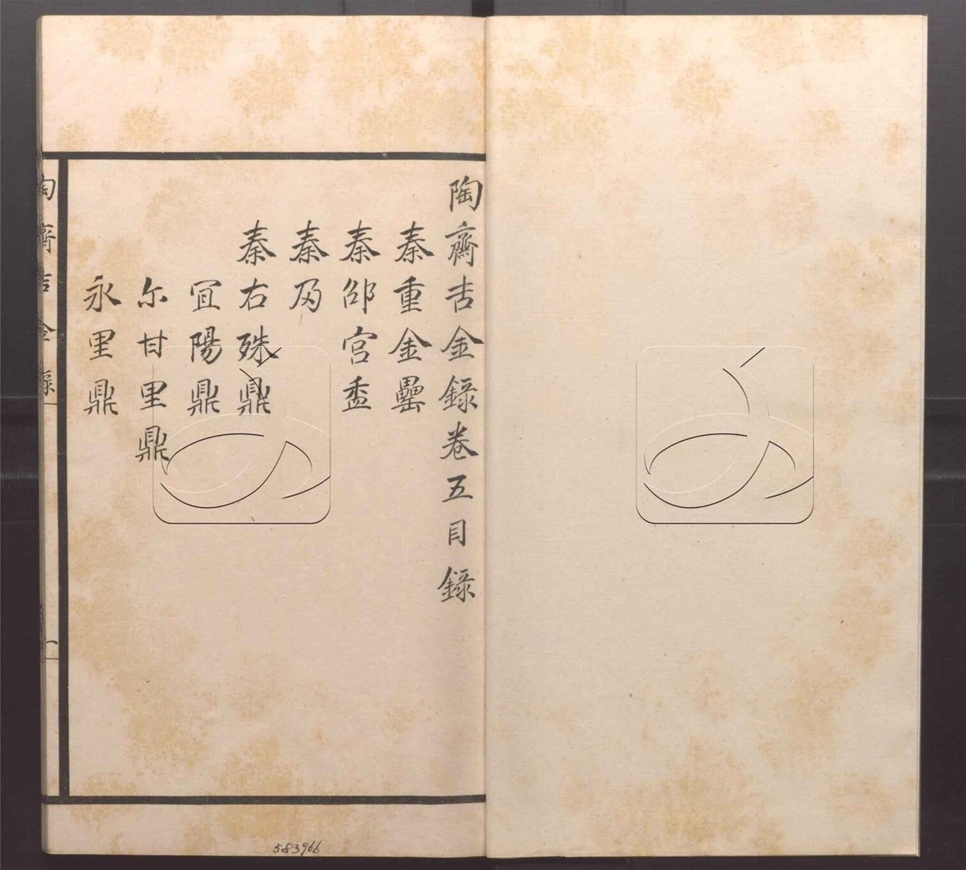 陶齋吉金錄卷五目錄
秦重金罍
秦邰宮盉
秦𠨬
秦右殊鼎
冝陽鼎
尓甘里鼎
永里鼎
陶齋吉金錄
一
583966